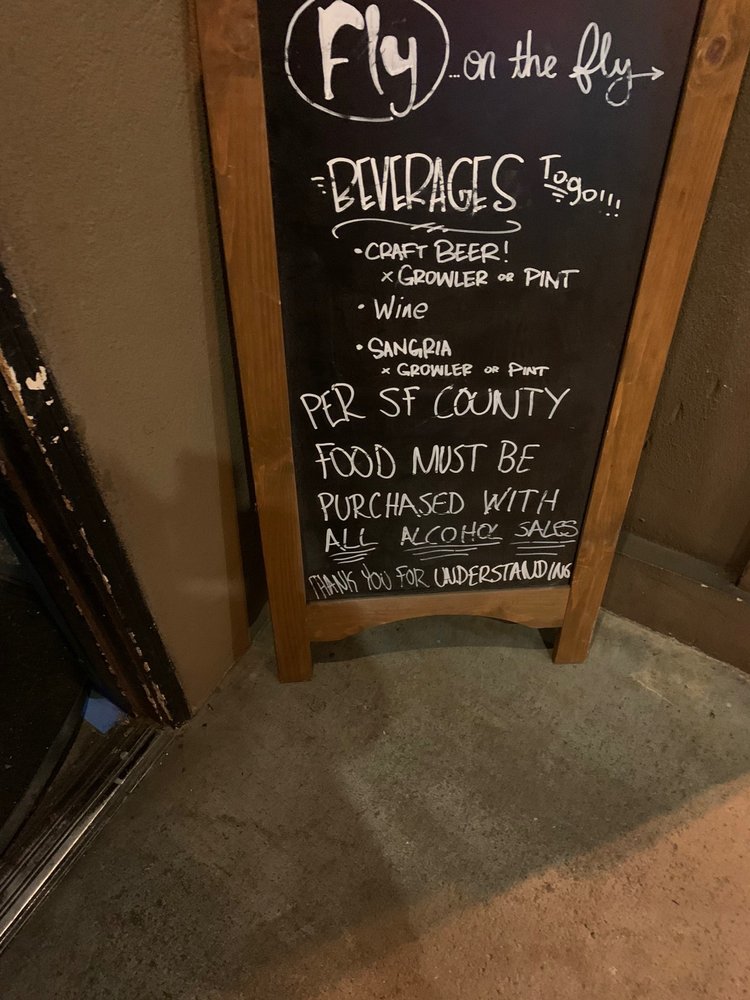 Fly ...on the fly
BEVERAGES Togo!!!
• CRAFT BEER!
x GROWLER OR PINT
• Wine
• SANGRIA
x GROWLER OR PINT
PER SF COUNTY
FOOD MUST BE
PURCHASED WITH
ALL ALCOHOL SALES
THANK YOU FOR UNDERSTANDING